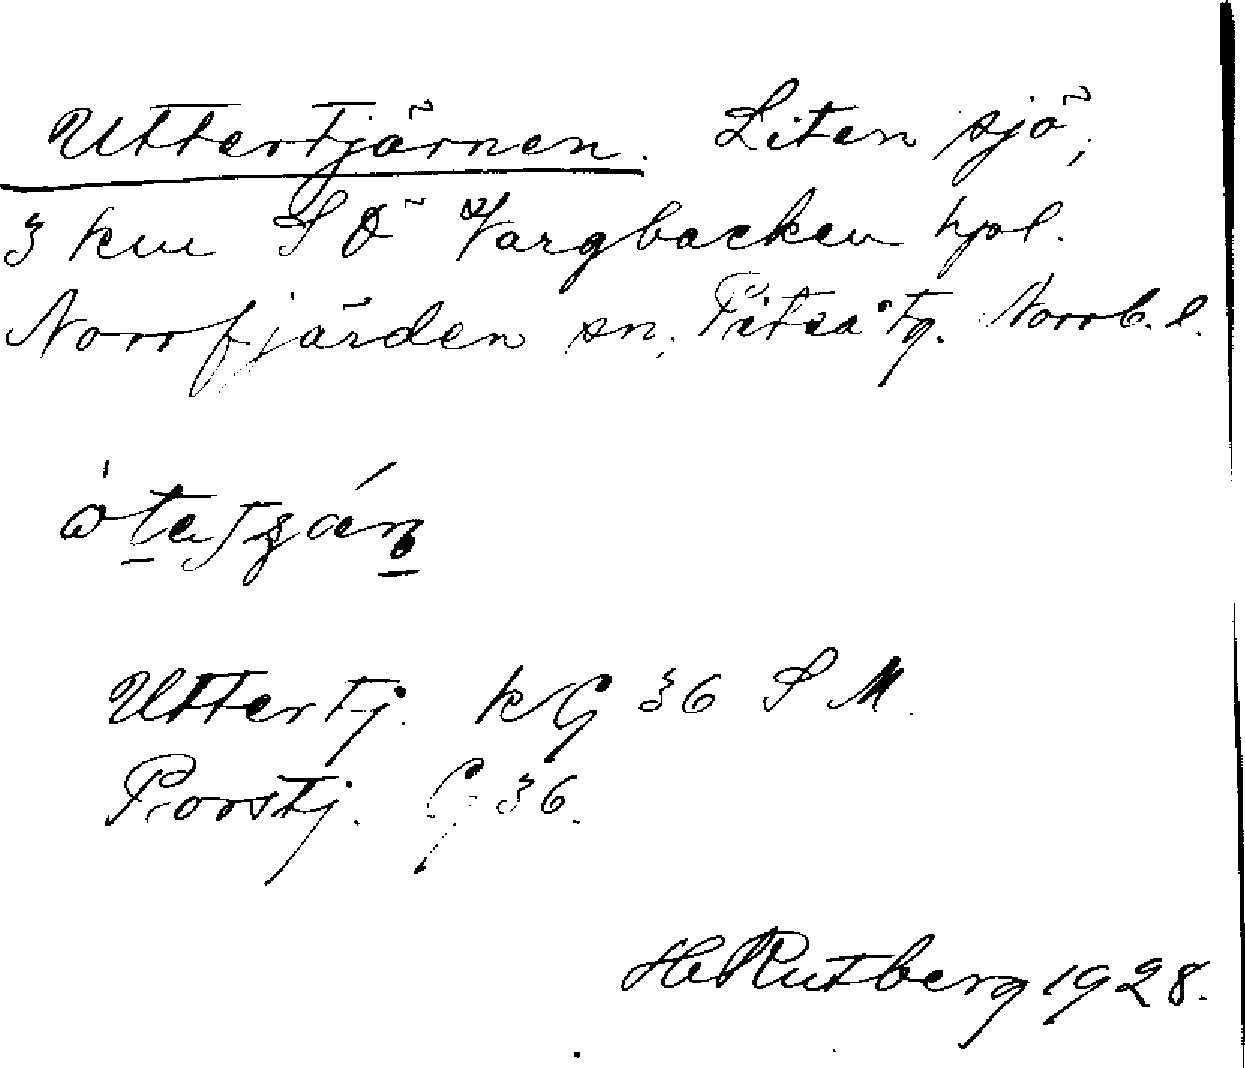 Uttertjärnen. Liten sjö,
3 km SÖ Vargbacken hpl.
Norrfjärden sn. Piteå tg. Norrb. l.
Uttertj. KG 36 S M.
Porstj. G 36.
H Rutberg 1928.